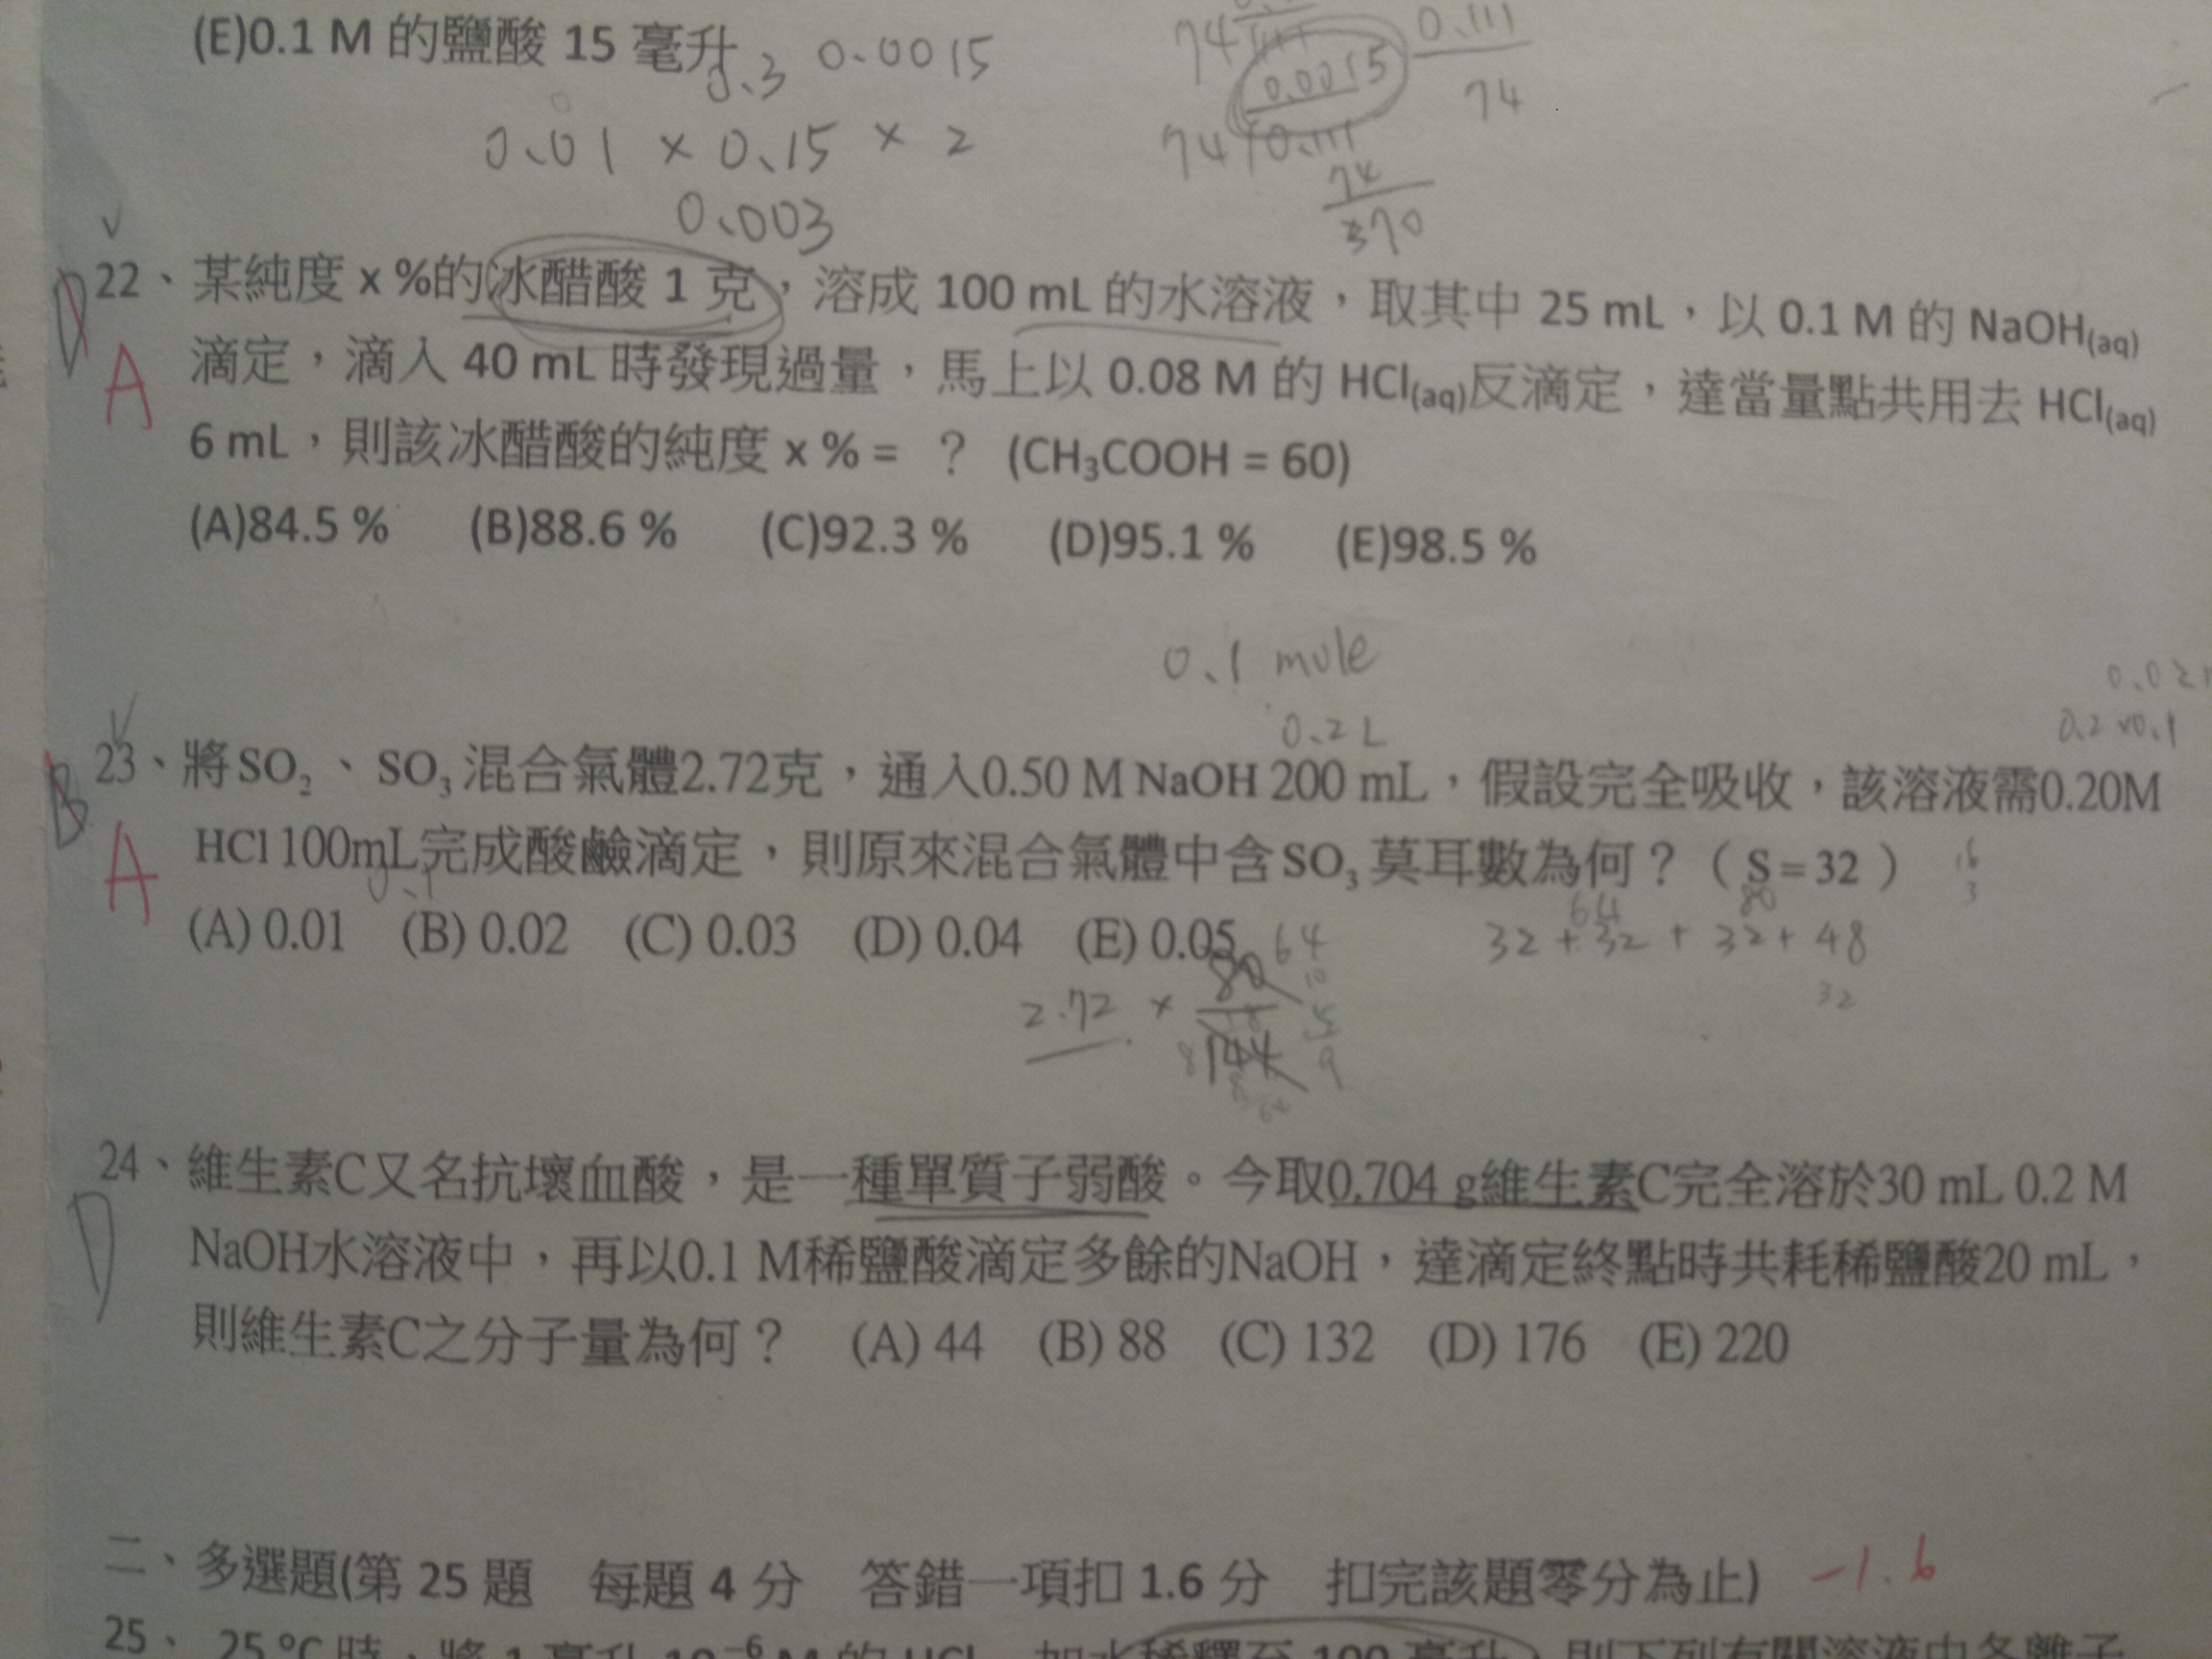 (E)0.1 M 的鹽酸 15 毫升
0.3 0.0015
0.01 × 0.15 × 2
0.003
74
0.0015
0.111
74
74 0.111
74
370
22、某純度 x %的冰醋酸 1 克，溶成 100 mL 的水溶液，取其中 25 mL，以 0.1 M 的 NaOH(aq)
D
A
滴定，滴入 40 mL 時發現過量，馬上以 0.08 M 的 HCl(aq)反滴定，達當量點共用去 HCl(aq)
6 mL，則該冰醋酸的純度 x % = ？ (CH₃COOH = 60)
(A)84.5 % (B)88.6 % (C)92.3 % (D)95.1 % (E)98.5 %
0.1 mole
0.2 L
0.02
0.2 × 0.1
23、將SO₂、SO₃混合氣體2.72克，通入0.50 M NaOH 200 mL，假設完全吸收，該溶液需0.20M
B
A
HCl 100mL完成酸鹼滴定，則原來混合氣體中含SO₃莫耳數為何？（S = 32）
16
3
0.1
64 80
(A) 0.01 (B) 0.02 (C) 0.03 (D) 0.04 (E) 0.05
64
32 + 32 + 32 + 48
32
2.72 × 80
144
9
24、維生素C又名抗壞血酸，是一種單質子弱酸。今取0.704 g維生素C完全溶於30 mL 0.2 M
D
NaOH水溶液中，再以0.1 M稀鹽酸滴定多餘的NaOH，達滴定終點時共耗稀鹽酸20 mL，
則維生素C之分子量為何？ (A) 44 (B) 88 (C) 132 (D) 176 (E) 220
二、多選題(第 25 題 每題 4 分 答錯一項扣 1.6 分 扣完該題零分為止)
-1.6
25、25 ℃ 時，將 1 毫升 10⁻⁶ M 的 HCl 加水稀釋至 100 毫升，則下列有關溶液中各離子